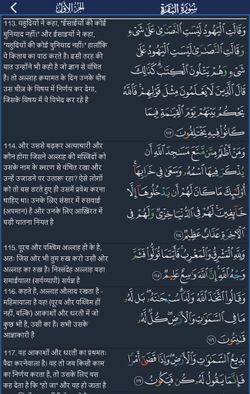 سُورَةُ البَقَرَةِ
الجزء الأول
113. यहूदियों ने कहा, "ईसाईयों की कोई
बुनियाद नहीं।" और ईसाइयों ने कहा,
"यहूदियों की कोई बुनियाद नहीं।" हालाँकि
वे किताब का पाठ करते हैं। इसी तरह की
बात उन्होंने भी कही है जो ज्ञान से वंचित
हैं। तो अल्लाह क़यामत के दिन उनके बीच
उस चीज़ के विषय में निर्णय कर देगा,
जिसके विषय में वे विभेद कर रहे है
وَقَالَتِ ٱلْيَهُودُ لَيْسَتِ ٱلنَّصَٰرَىٰ عَلَىٰ شَىْءٍ
وَقَالَتِ ٱلنَّصَٰرَىٰ لَيْسَتِ ٱلْيَهُودُ عَلَىٰ
شَىْءٍ وَهُمْ يَتْلُونَ ٱلْكِتَٰبَ كَذَٰلِكَ
قَالَ ٱلَّذِينَ لَا يَعْلَمُونَ مِثْلَ قَوْلِهِمْ فَٱللَّهُ
يَحْكُمُ بَيْنَهُمْ يَوْمَ ٱلْقِيَٰمَةِ فِيمَا
كَانُوا۟ فِيهِ يَخْتَلِفُونَ ١١٣
114. और उससे बढ़कर अत्याचारी और
कौन होगा जिसने अल्लाह की मस्जिदों को
उसके नाम के स्मरण से वंचित रखा और
उन्हें उजाडने पर उतारू रहा? ऐसे लोगों
को तो बस डरते हुए ही उसमें प्रवेश करना
चाहिए था। उनके लिए संसार में रुसवाई
(अपमान) है और उनके लिए आख़िरत में
बड़ी यातना नियत है
وَمَنْ أَظْلَمُ مِمَّن مَّنَعَ مَسَٰجِدَ ٱللَّهِ أَن
يُذْكَرَ فِيهَا ٱسْمُهُۥ وَسَعَىٰ فِى خَرَابِهَآ
أُو۟لَٰٓئِكَ مَا كَانَ لَهُمْ أَن يَدْخُلُوهَآ إِلَّا
خَآئِفِينَ لَهُمْ فِى ٱلدُّنْيَا خِزْىٌ وَلَهُمْ فِى
ٱلْءَاخِرَةِ عَذَابٌ عَظِيمٌ ١١٤
115. पूरब और पश्चिम अल्लाह ही के है,
अतः जिस ओर भी तुम रुख करो उसी ओर
अल्लाह का रुख़ है। निस्संदेह अल्लाह बड़ा
समाईवाला (सर्वव्यापी) सर्वज्ञ है
وَلِلَّهِ ٱلْمَشْرِقُ وَٱلْمَغْرِبُ فَأَيْنَمَا تُوَلُّوا۟ فَثَمَّ
وَجْهُ ٱللَّهِ إِنَّ ٱللَّهَ وَٰسِعٌ عَلِيمٌ ١١٥
116. कहते है, अल्लाह औलाद रखता है -
महिमावाला है वह! (पूरब और पश्चिम हीं
नहीं, बल्कि) आकाशों और धरती में जो
कुछ भी है, उसी का है। सभी उसके
आज्ञाकारी है
وَقَالُوا۟ ٱتَّخَذَ ٱللَّهُ وَلَدًا سُبْحَٰنَهُۥ بَل لَّهُۥ
مَا فِى ٱلسَّمَٰوَٰتِ وَٱلْأَرْضِ كُلٌّ لَّهُۥ
قَٰنِتُونَ ١١٦
117. वह आकाशों और धरती का प्रथमतः
पैदा करनेवाला है। वह तो जब किसी काम
का निर्णय करता है, तो उसके लिए बस
कह देता है कि "हो जा" और वह हो जाता है
بَدِيعُ ٱلسَّمَٰوَٰتِ وَٱلْأَرْضِ وَإِذَا قَضَىٰٓ أَمْرًا
فَإِنَّمَا يَقُولُ لَهُۥ كُن فَيَكُونُ ١١٧